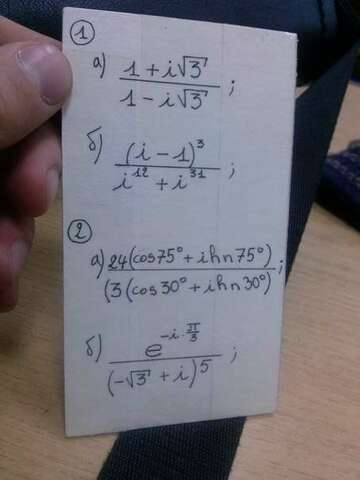 ①
а) (1 + i√3) / (1 - i√3) ;
б) (i - 1)³ / (i¹² + i³¹) ;
②
а) 24(cos75° + i hn75°) / (3(cos30° + i hn30°) ;
б) e^(-i·π/3) / (-√3 + i)⁵ ;